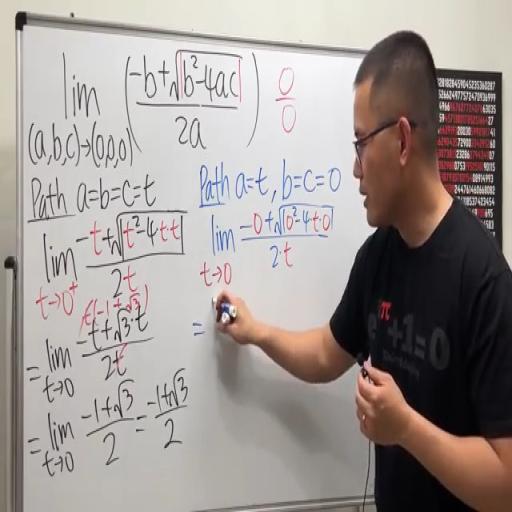 lim (a,b,c)→(0,0,0) ( (-b+√|b²-4ac|) / 2a ) 0/0
Path a=b=c=t
lim t→0⁺ (-t+√|t²-4·t·t|) / 2t
t(-1+√3)
= lim t→0 (-t+√3 t) / 2t
= lim t→0 (-1+√3)/2 = (-1+√3)/2
Path a=t, b=c=0
lim t→0 (-0+√|0²-4·t·0|) / 2·t
=
eπ+1=0